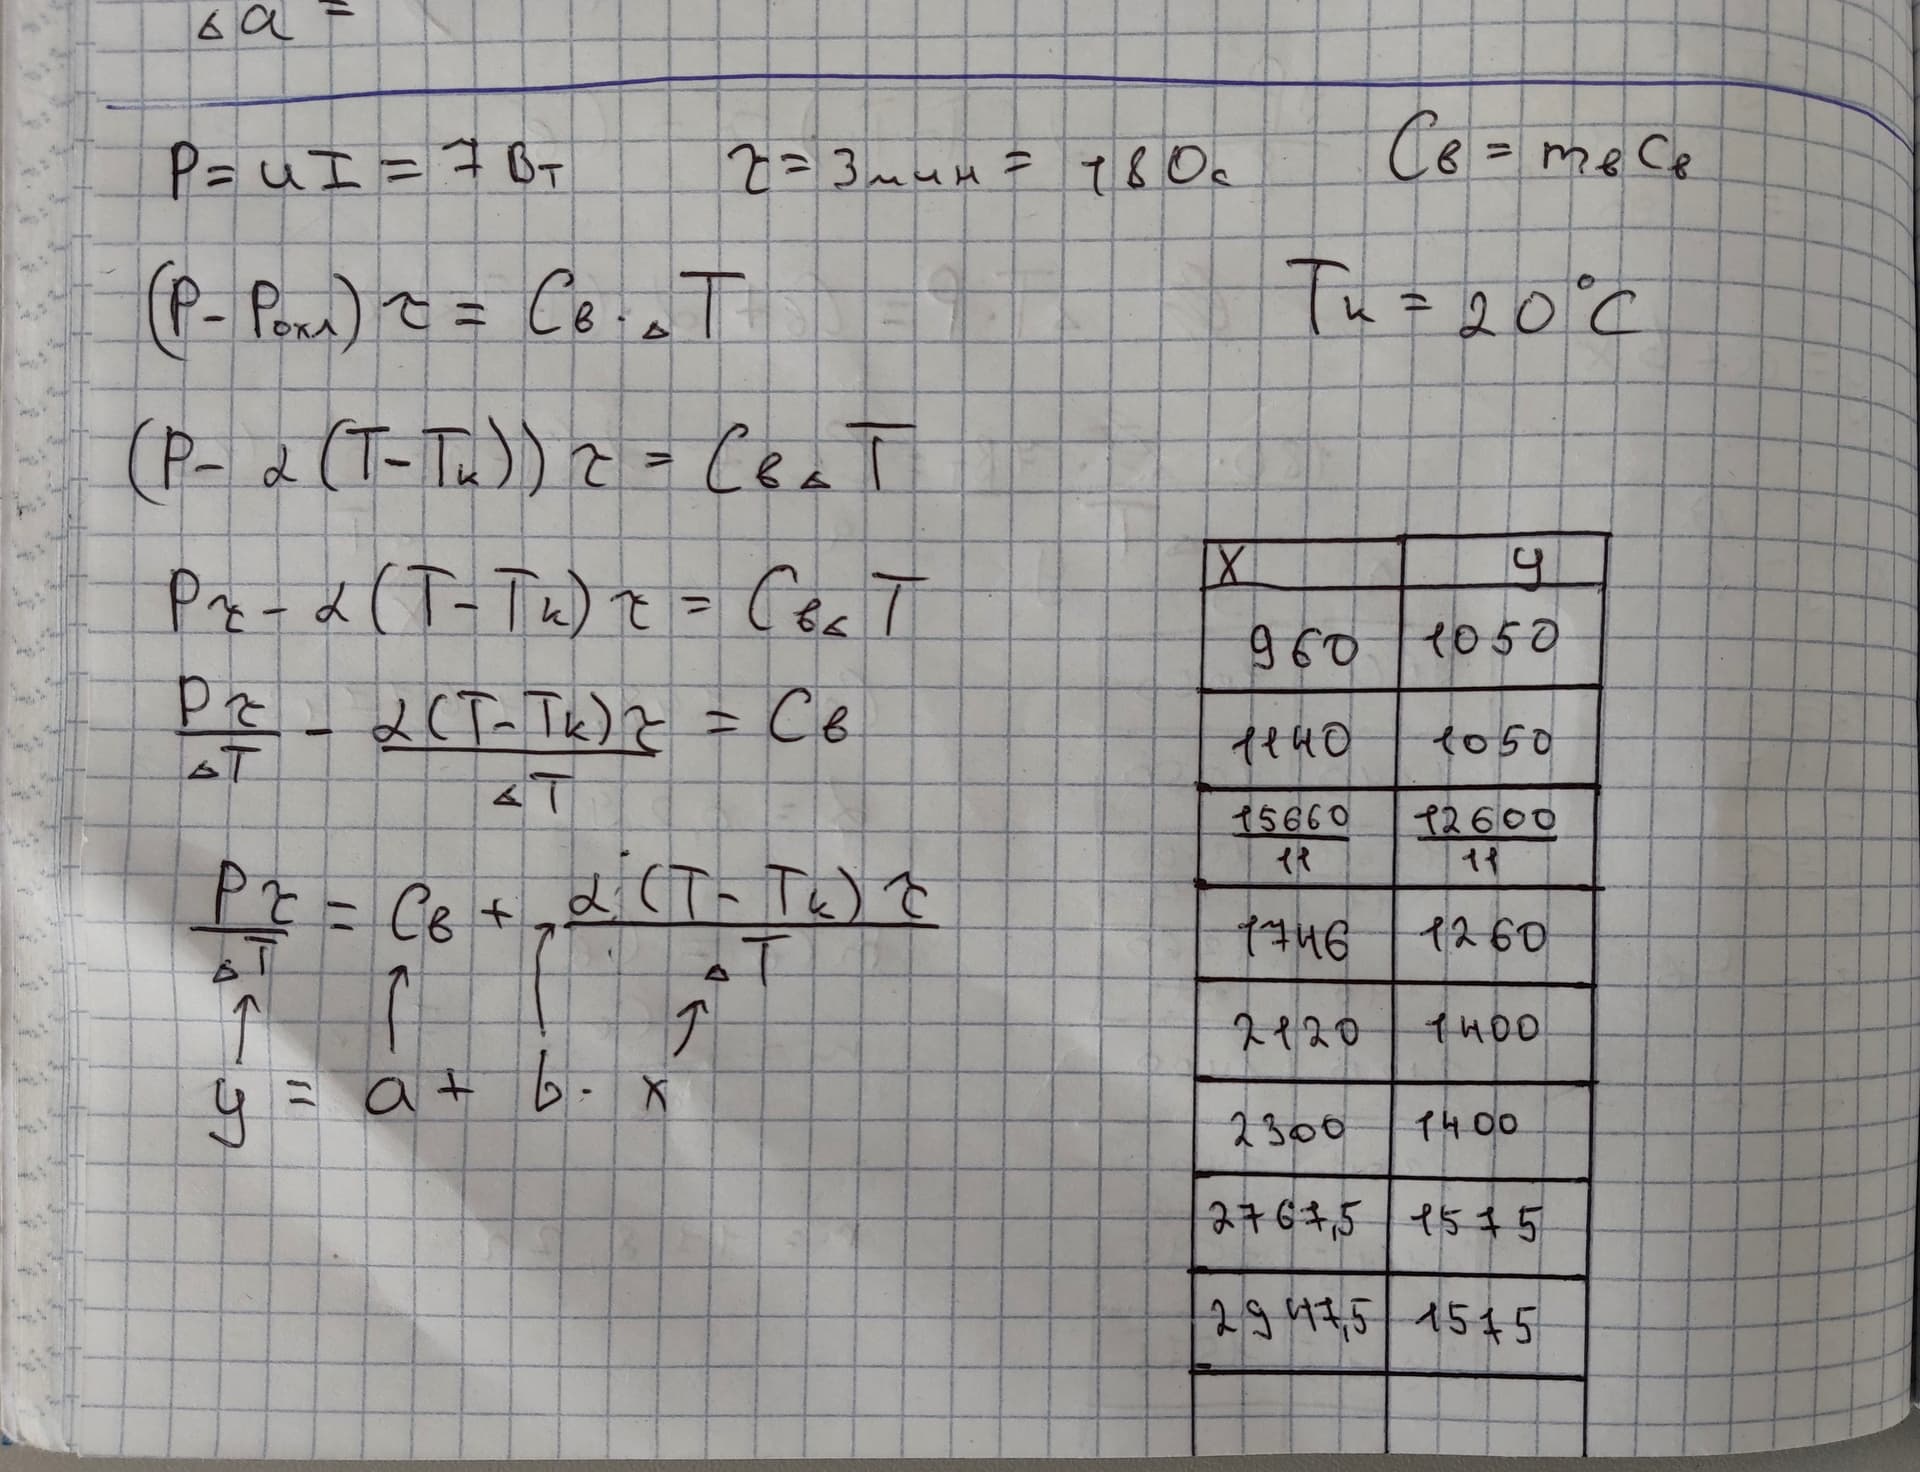 △a =
P = UI = 7 Вт τ = 3 мин = 180 с Cв = mв cв
(P - Pохл) τ = Cв · △T Tк = 20°C
(P - α (T - Tк)) τ = Cв △T
Pτ - α (T - Tк) τ = Cв △T
Pτ/△T - α(T - Tк)τ/△T = Cв
Pτ/△T = Cв + α · (T - Tк) τ/△T
↑ ↑ ↑ ↑
y = a + b · x
x y
960 1050
1140 1050
15660/11 12600/11
1746 1260
2120 1400
2300 1400
2767,5 1575
2947,5 1575